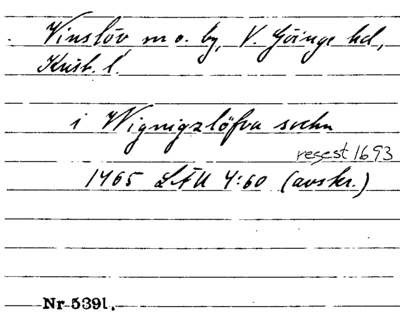 Vinslöv m o. by, V. Göinge hd,
Krist. l.
i Wignigzlöfva sochn
regest 1693
1465 LÄU 4:60 (avskr.)
Nr 5391.